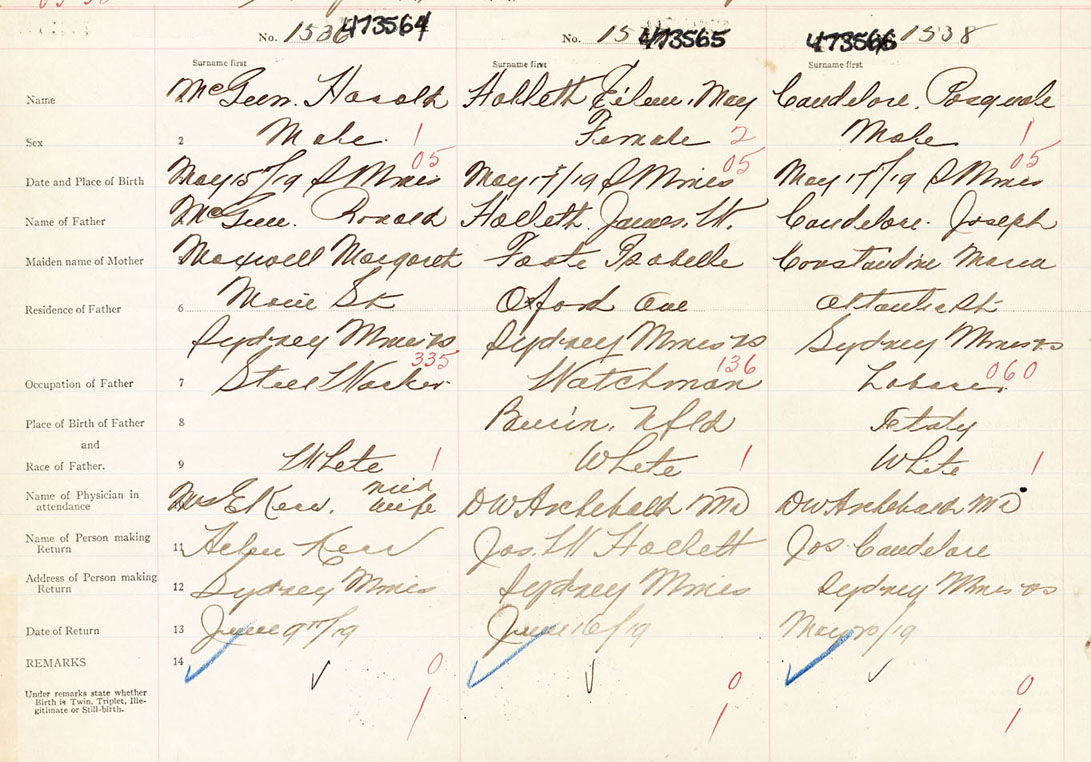 No. 1536 473564 No. 15 473565 473566 1538
Surname first Surname first Surname first
Name Harold Halleth Eileen May Caudelore, Pasquale
Sex 2 Male. 1 Female 2 Male 1
05 05 05
Date and Place of Birth May 15/19 S Mines May 17/19 S Mines May 17/19 S Mines
Name of Father Ronald Halleth James. W. Caudelore. Joseph
Maiden name of Mother Maxwell Margaret Foote Isabelle Constantine Maria
Residence of Father 6 St Oxford Ave
Sydney Mines ns Sydney Mines ns Sydney Mines ns
335 136 060
Occupation of Father 7 Steel Worker Watchman Laborer
Place of Birth of Father 8 Burin, Nfld Italy
and
Race of Father. 9 White 1 White 1 White 1
Name of Physician in Mrs E Kerr. mid DW Archebald MD DW Archebald MD
attendance wife
Name of Person making
Return 11 Kerr Jos. W Hallett Jos. Caudelore
Address of Person making
Return 12 Sydney Mines Sydney Mines Sydney Mines ns
Date of Return 13 June 9th/19 June 16/19 May 20/19
REMARKS 14 0 0 0
Under remarks state whether
Birth is Twin, Triplet, Ille-
gitimate or Still-birth. 1 1 1